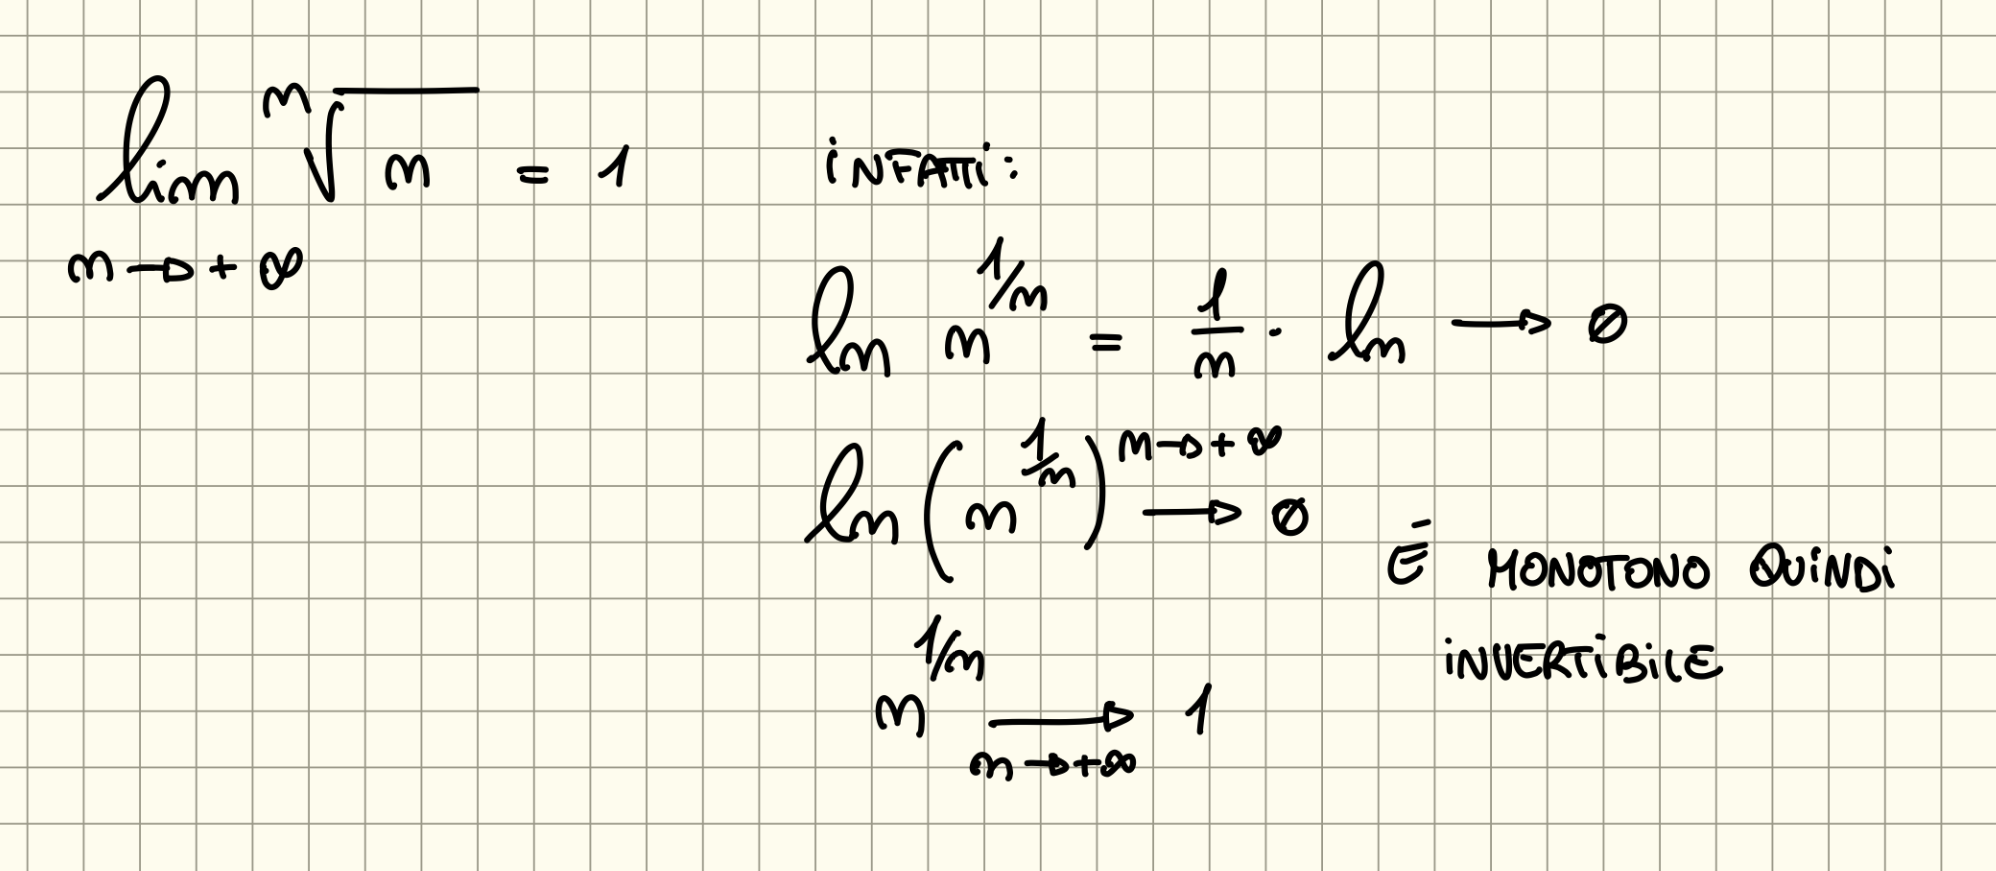 lim ⁿ√n = 1
n → + ∞
iNFATTi:
ln n^{1/n} = 1/n · ln → 0
ln (n^{1/n}) → 0 n → + ∞
É MONOTONO QUiNDi
iNVERTiBiLE
n^{1/n} → 1
n → +∞